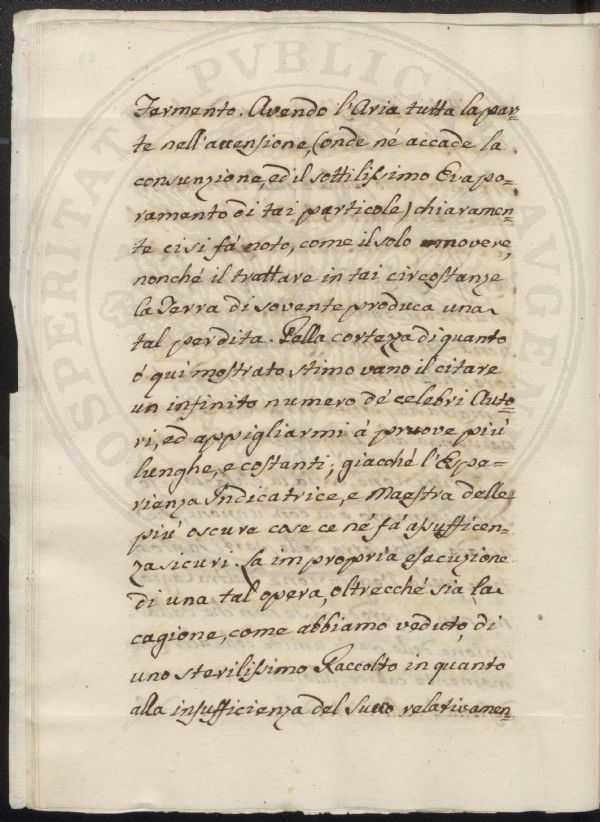 Fermento. Avendo l'Aria tutta la par-
te nell'accensione, (onde né accade la
consunzione, ed il sottilissimo Evapo-
ramento di tai particole) chiaramen-
te ci si fá noto, come il solo movere,
nonché il trattare in tai circostanze
la Terra di sovente produca una
tal perdita. Pella certezza di quanto
ó qui mostrato stimo vano il citare
un infinito numero dé celebri Auto-
ri, ed appigliarmi á pruove piú
lunghe, e costanti; giacché l'Espe-
rienza Indicatrice, e Maestra delle
piú oscure cose ce né fá assufficen-
za sicuri. La impropria esecuzione
di una tal opera, oltrecché sia la
cagione, come abbiamo veduto, di
uno sterilissimo Raccolto in quanto
alla insufficienza del Succo relativamen-
PUBLICAE
PROSPERITATI
AUGEN